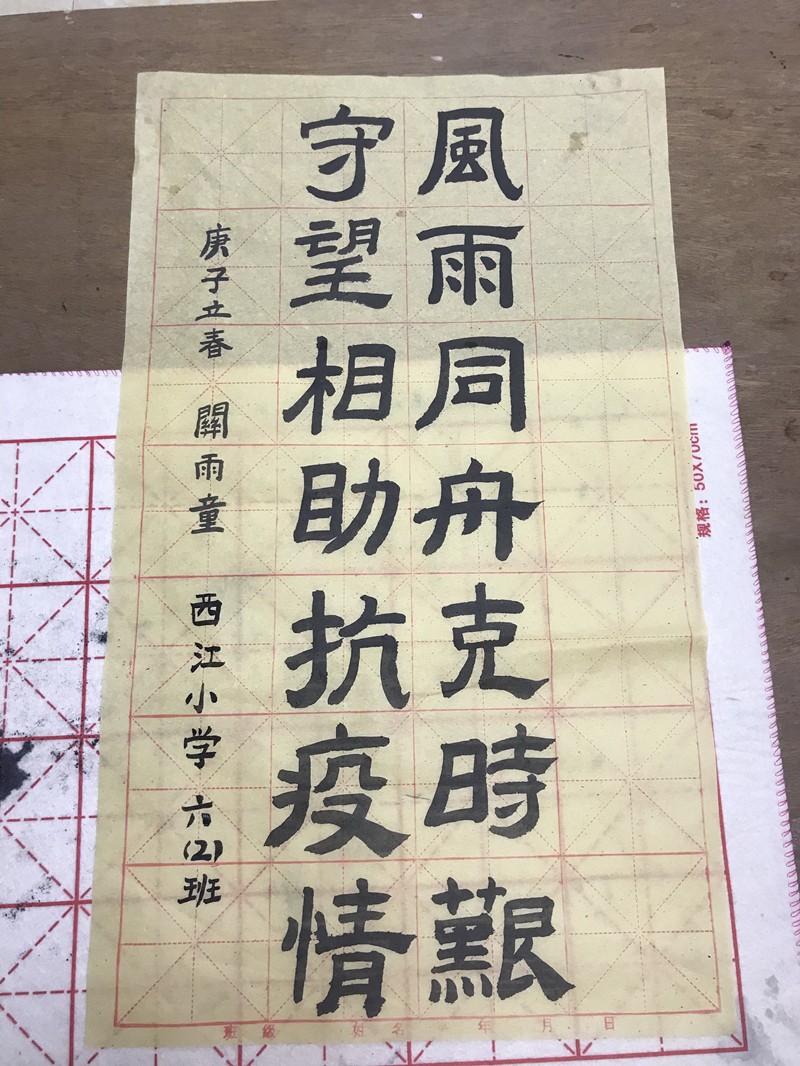 風雨同舟克時艱
守望相助抗疫情
庚子立春 關雨童 西江小学 六(2)班
班級 姓名 年 月 日
规格：50X70cm